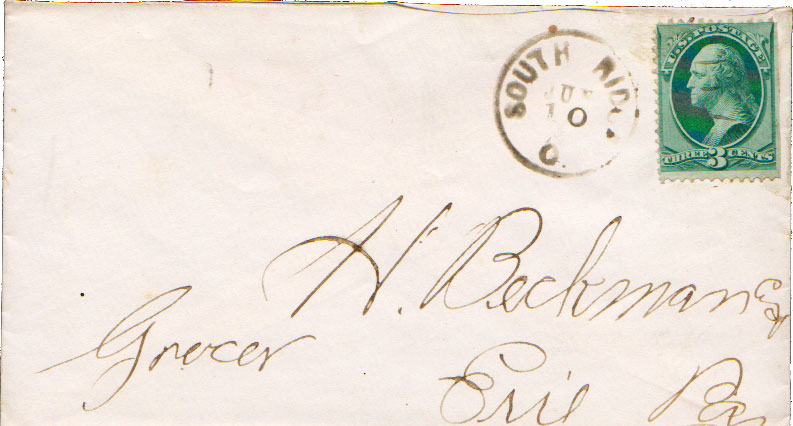 SOUTH RIDGE
JUN
10
O.
U.S. POSTAGE
THREE 3 CENTS
H. Beckman Esq
Grocer
Erie Pa